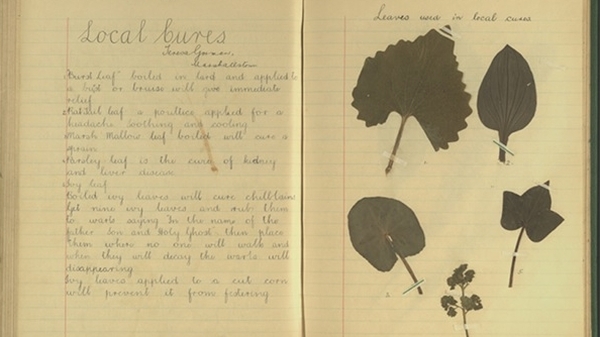 Local Cures
Teresa
"Burst Leaf" boiled in lard and applied to
a or bruise will give immediate
relief
leaf a poultice applied for a
headache. Soothing and cooling
Marsh Mallow leaf boiled will cure a
sprain
Parsley leaf is the cure of kidney
and liver disease
Ivy leaf
Boiled ivy leaves will cure chilblains
Get nine ivy leaves and rub them
to warts saying "In the name of the
Father Son and Holy Ghost" then place
them where no one will walk and
when they will decay the warts will
disappearing
Ivy leaves applied to a cut corn
will prevent it from festering
Leaves used in local cures